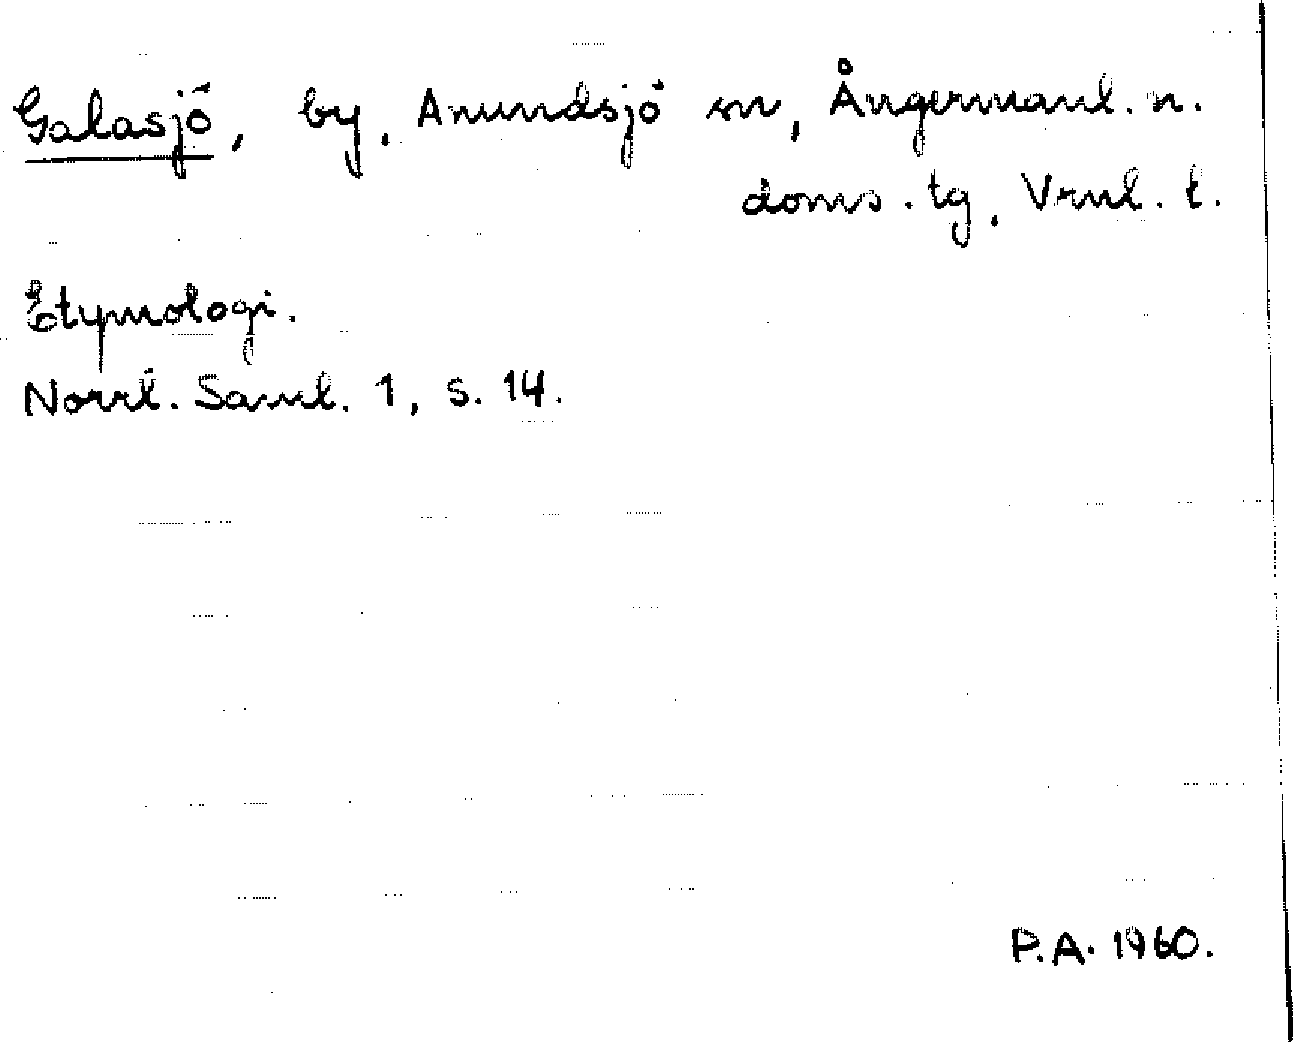 Galasjö, by, Anundsjö sn, Ångermanl. n.
doms. tg, Vrnl. l.
Etymologi.
Norrl. Saml. 1, s. 14.
P.A. 1960.